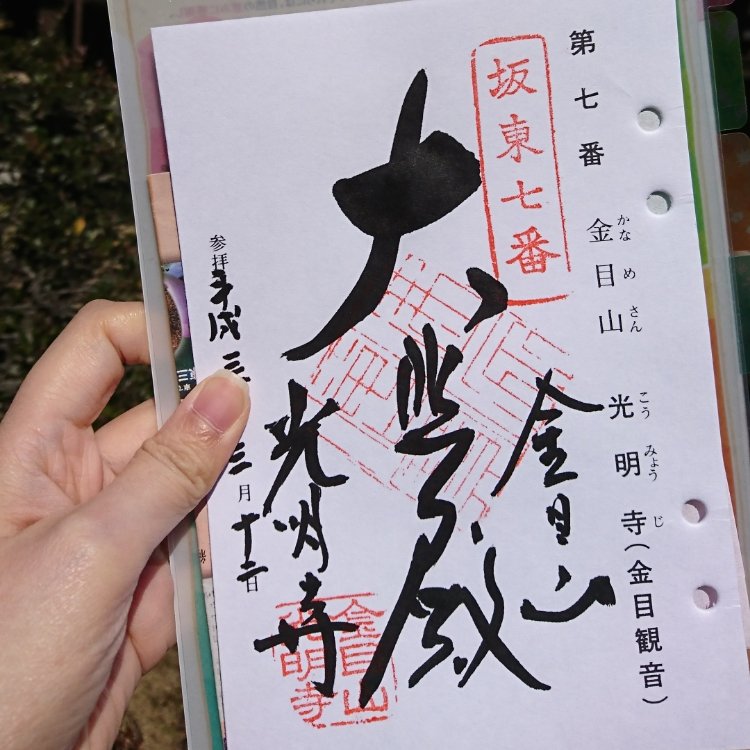 第七番 金目山 光明寺(金目観音)
かなめさん こうみょうじ
坂東七番
金目山
大悲殿
光明寺
参拝 平成三
三月十二日
金目山
光明寺